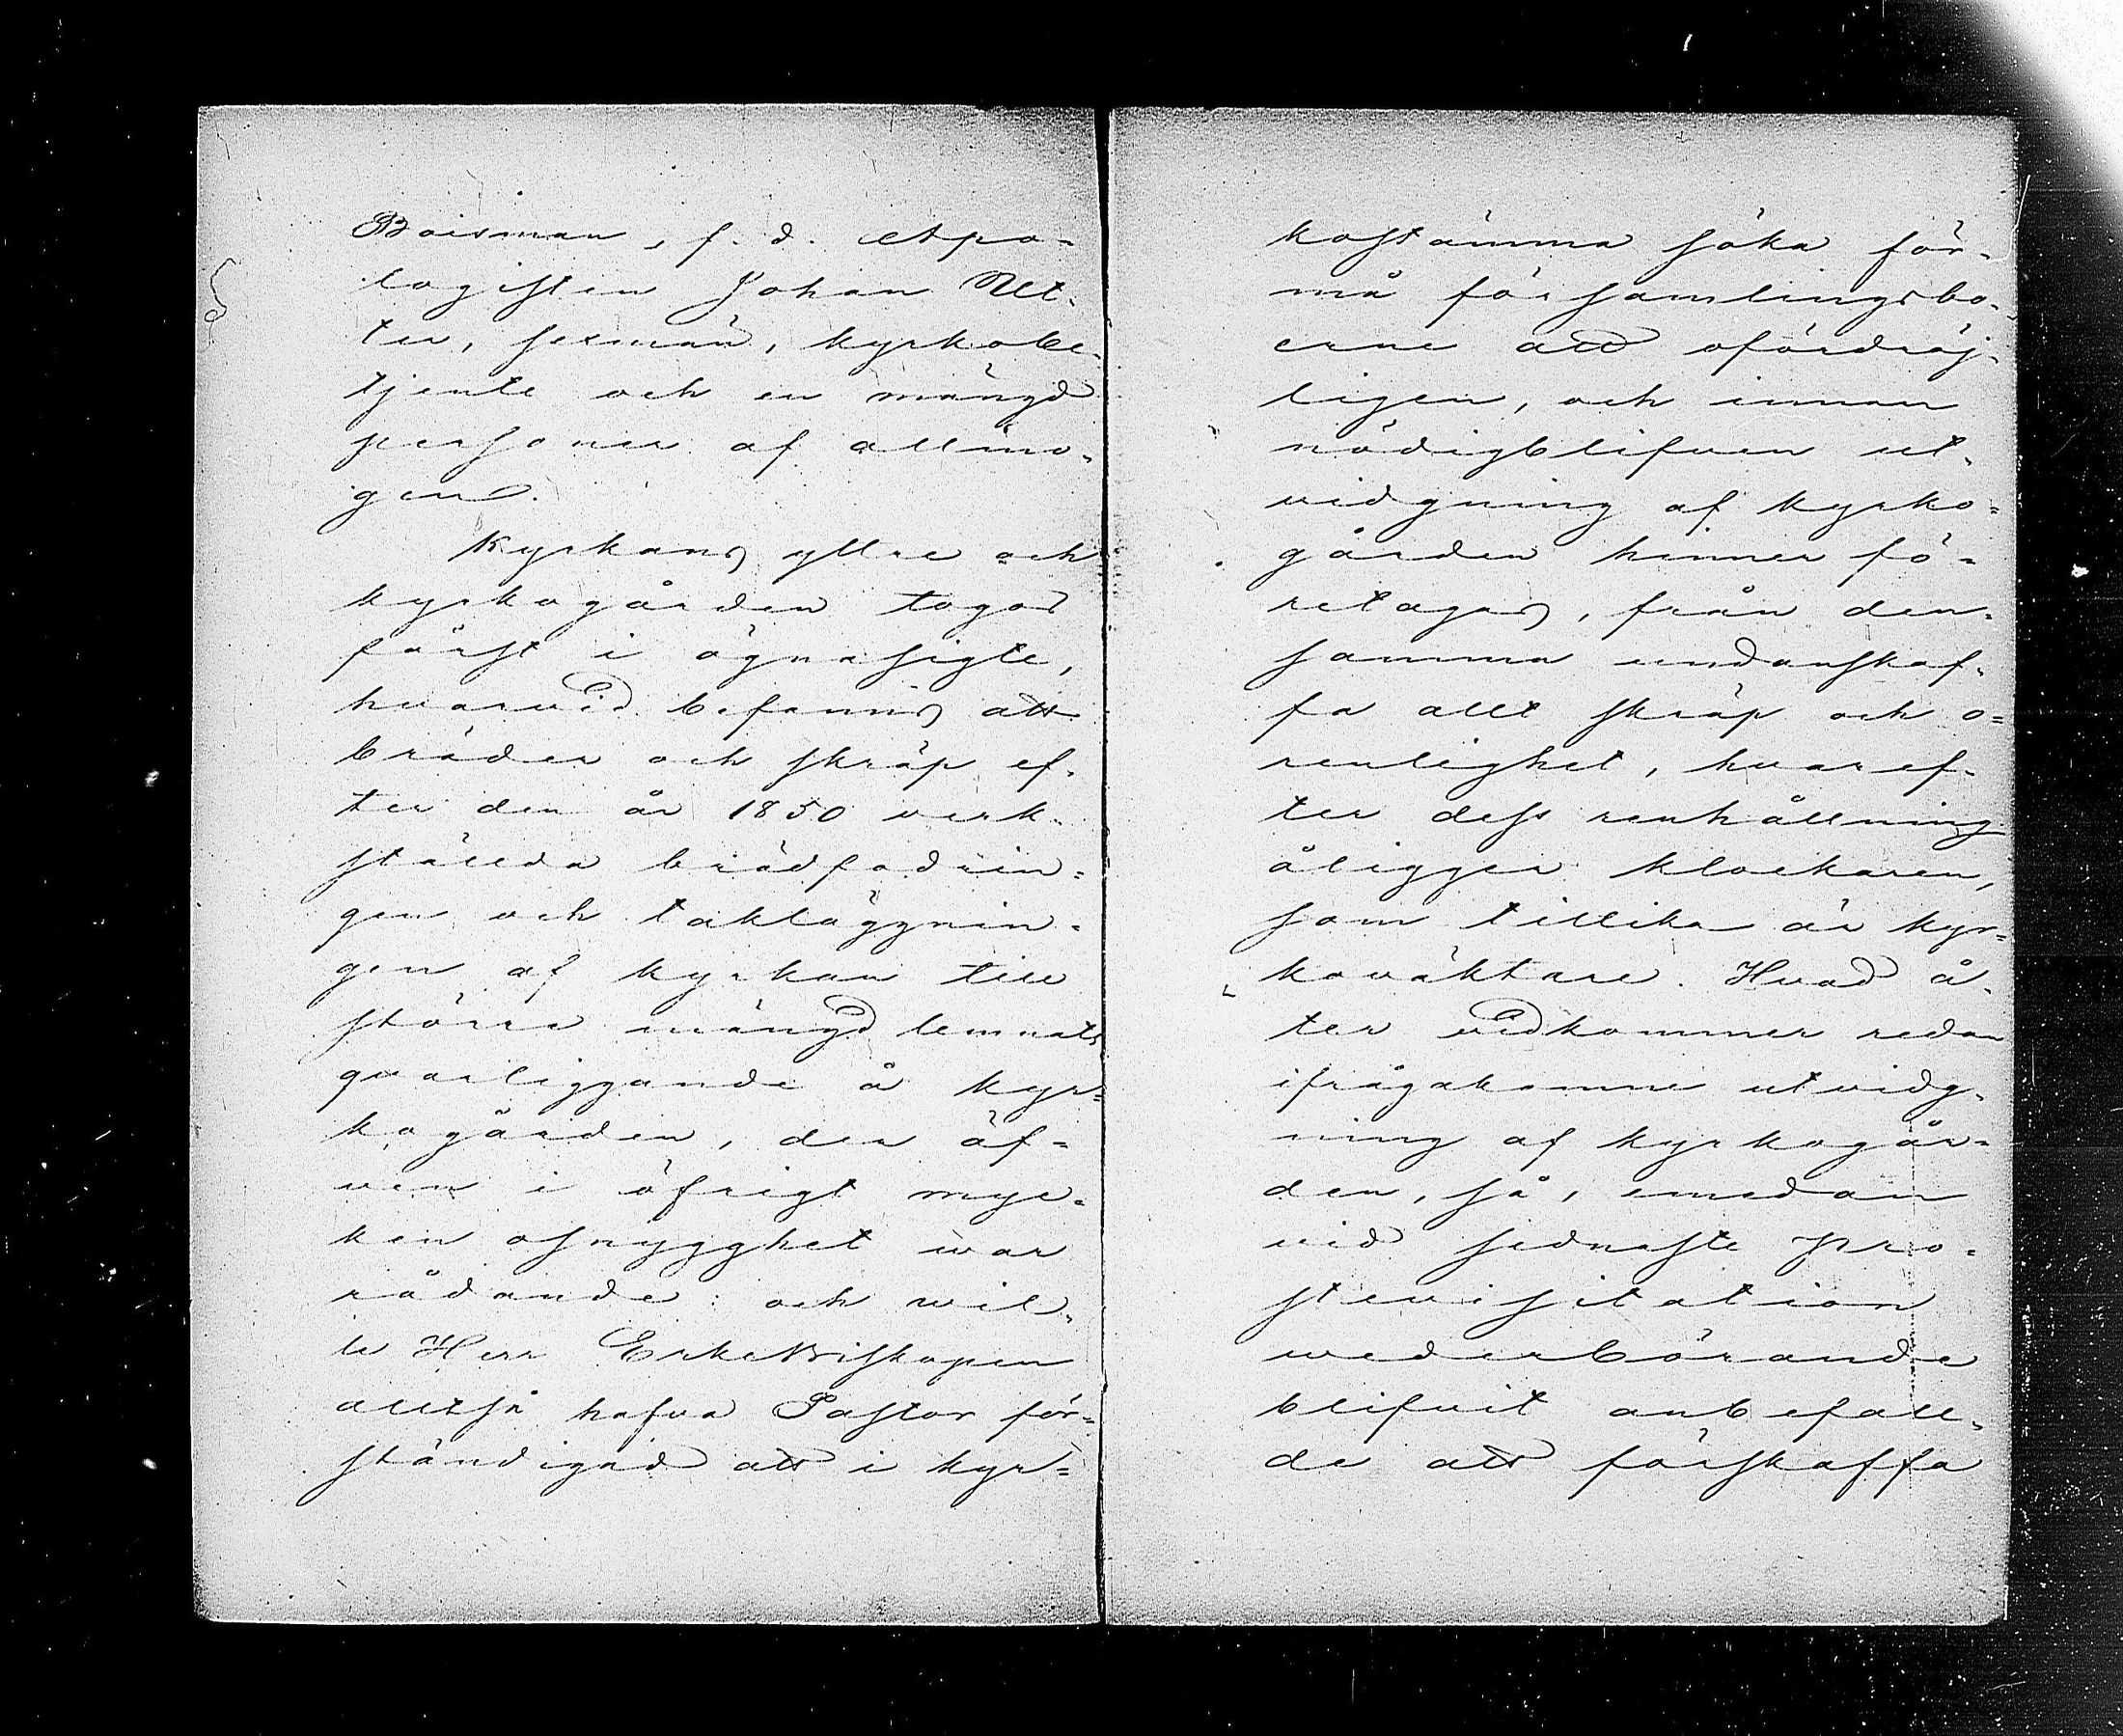 Boisman, f. d. Apo-
logisten Johan Ut-
ter, sexmän, kyrkobe-
tjente och en mängd
personer af allmo-
gen.
Kyrkans yttre och
kyrkogården togos
först i ögnasigte,
hvarvid befanns att
bräder och skräp ef-
ter den år 1850 verk-
stälda brädfodrin-
gen och takläggnin-
gen af kyrkan till
större mängd lemnats
qvarliggande å kyr-
kogården, der äf-
ven i öfrigt myc-
ken osnygghet war
rådande: och wil-
le Herr ErkeBiskopen
alltså hafva Pastor för-
ständigad att i kyr-
kostämma söka för-
må församlingsbo-
erne att ofördröj-
ligen, och innan
nödigblifven ut-
vidgning af kyrko-
gården hinner fö-
retagas, från den-
samma undanskaf-
fa allt skräp och o-
renlighet, hvaref-
ter dess renhållning
åligger klockaren,
som tillika är kyr-
koväktare. Hvad å-
ter vidkommer redan
ifrågakomne utvidg-
ning af kyrkogår-
den, så, emedan
vid sednaste pro-
stevisitation
wederbörande
blifvit anbefall-
de att förskaffa